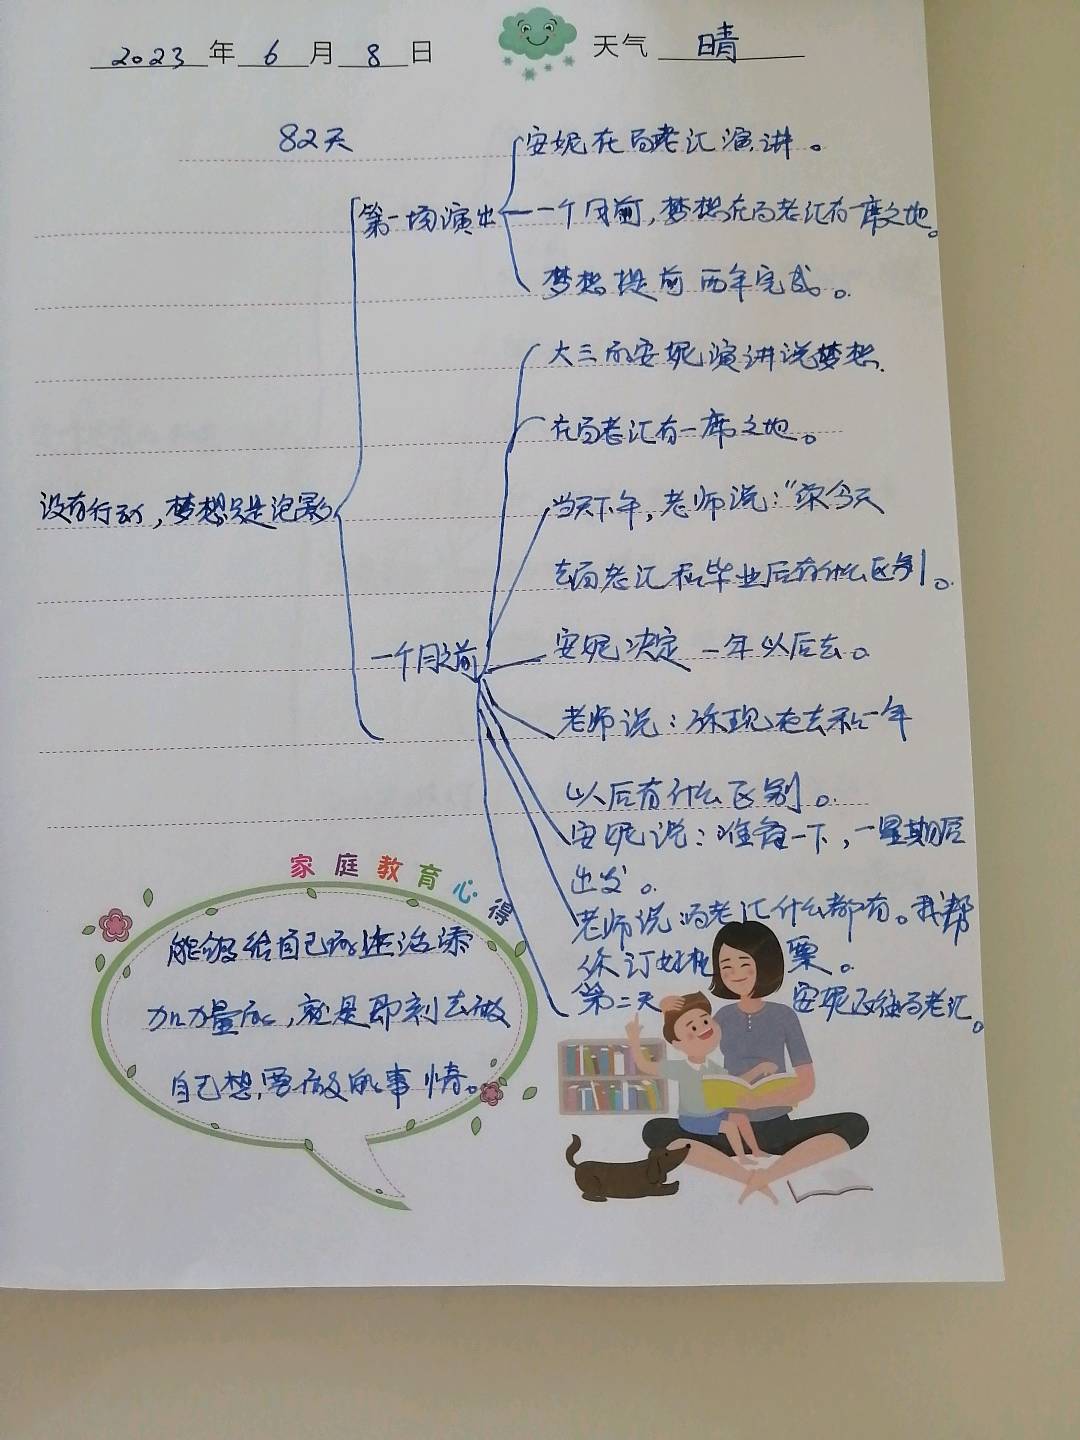 2023年6月8日 天气 晴
82天
安妮在百老汇演讲。
第一场演出
一个月前,梦想在百老汇有一席之地。
梦想提前两年完成。
大三的安妮演讲说梦想.
在百老汇有一席之地。
没有行动,梦想只是泡影
当天下午,老师说:“你今天
去百老汇和毕业后有什么区别。
一个月之前
安妮决定一年以后去。
老师说:你现在去和一年
以后有什么区别。
安妮说:准备一下,一星期后
出发。
老师说百老汇什么都有。我帮
你订好机票。
第二天 安妮飞往百老汇。
家庭教育心得
能够给自己的生活添
加力量的,就是即刻去做
自己想,要做的事情。